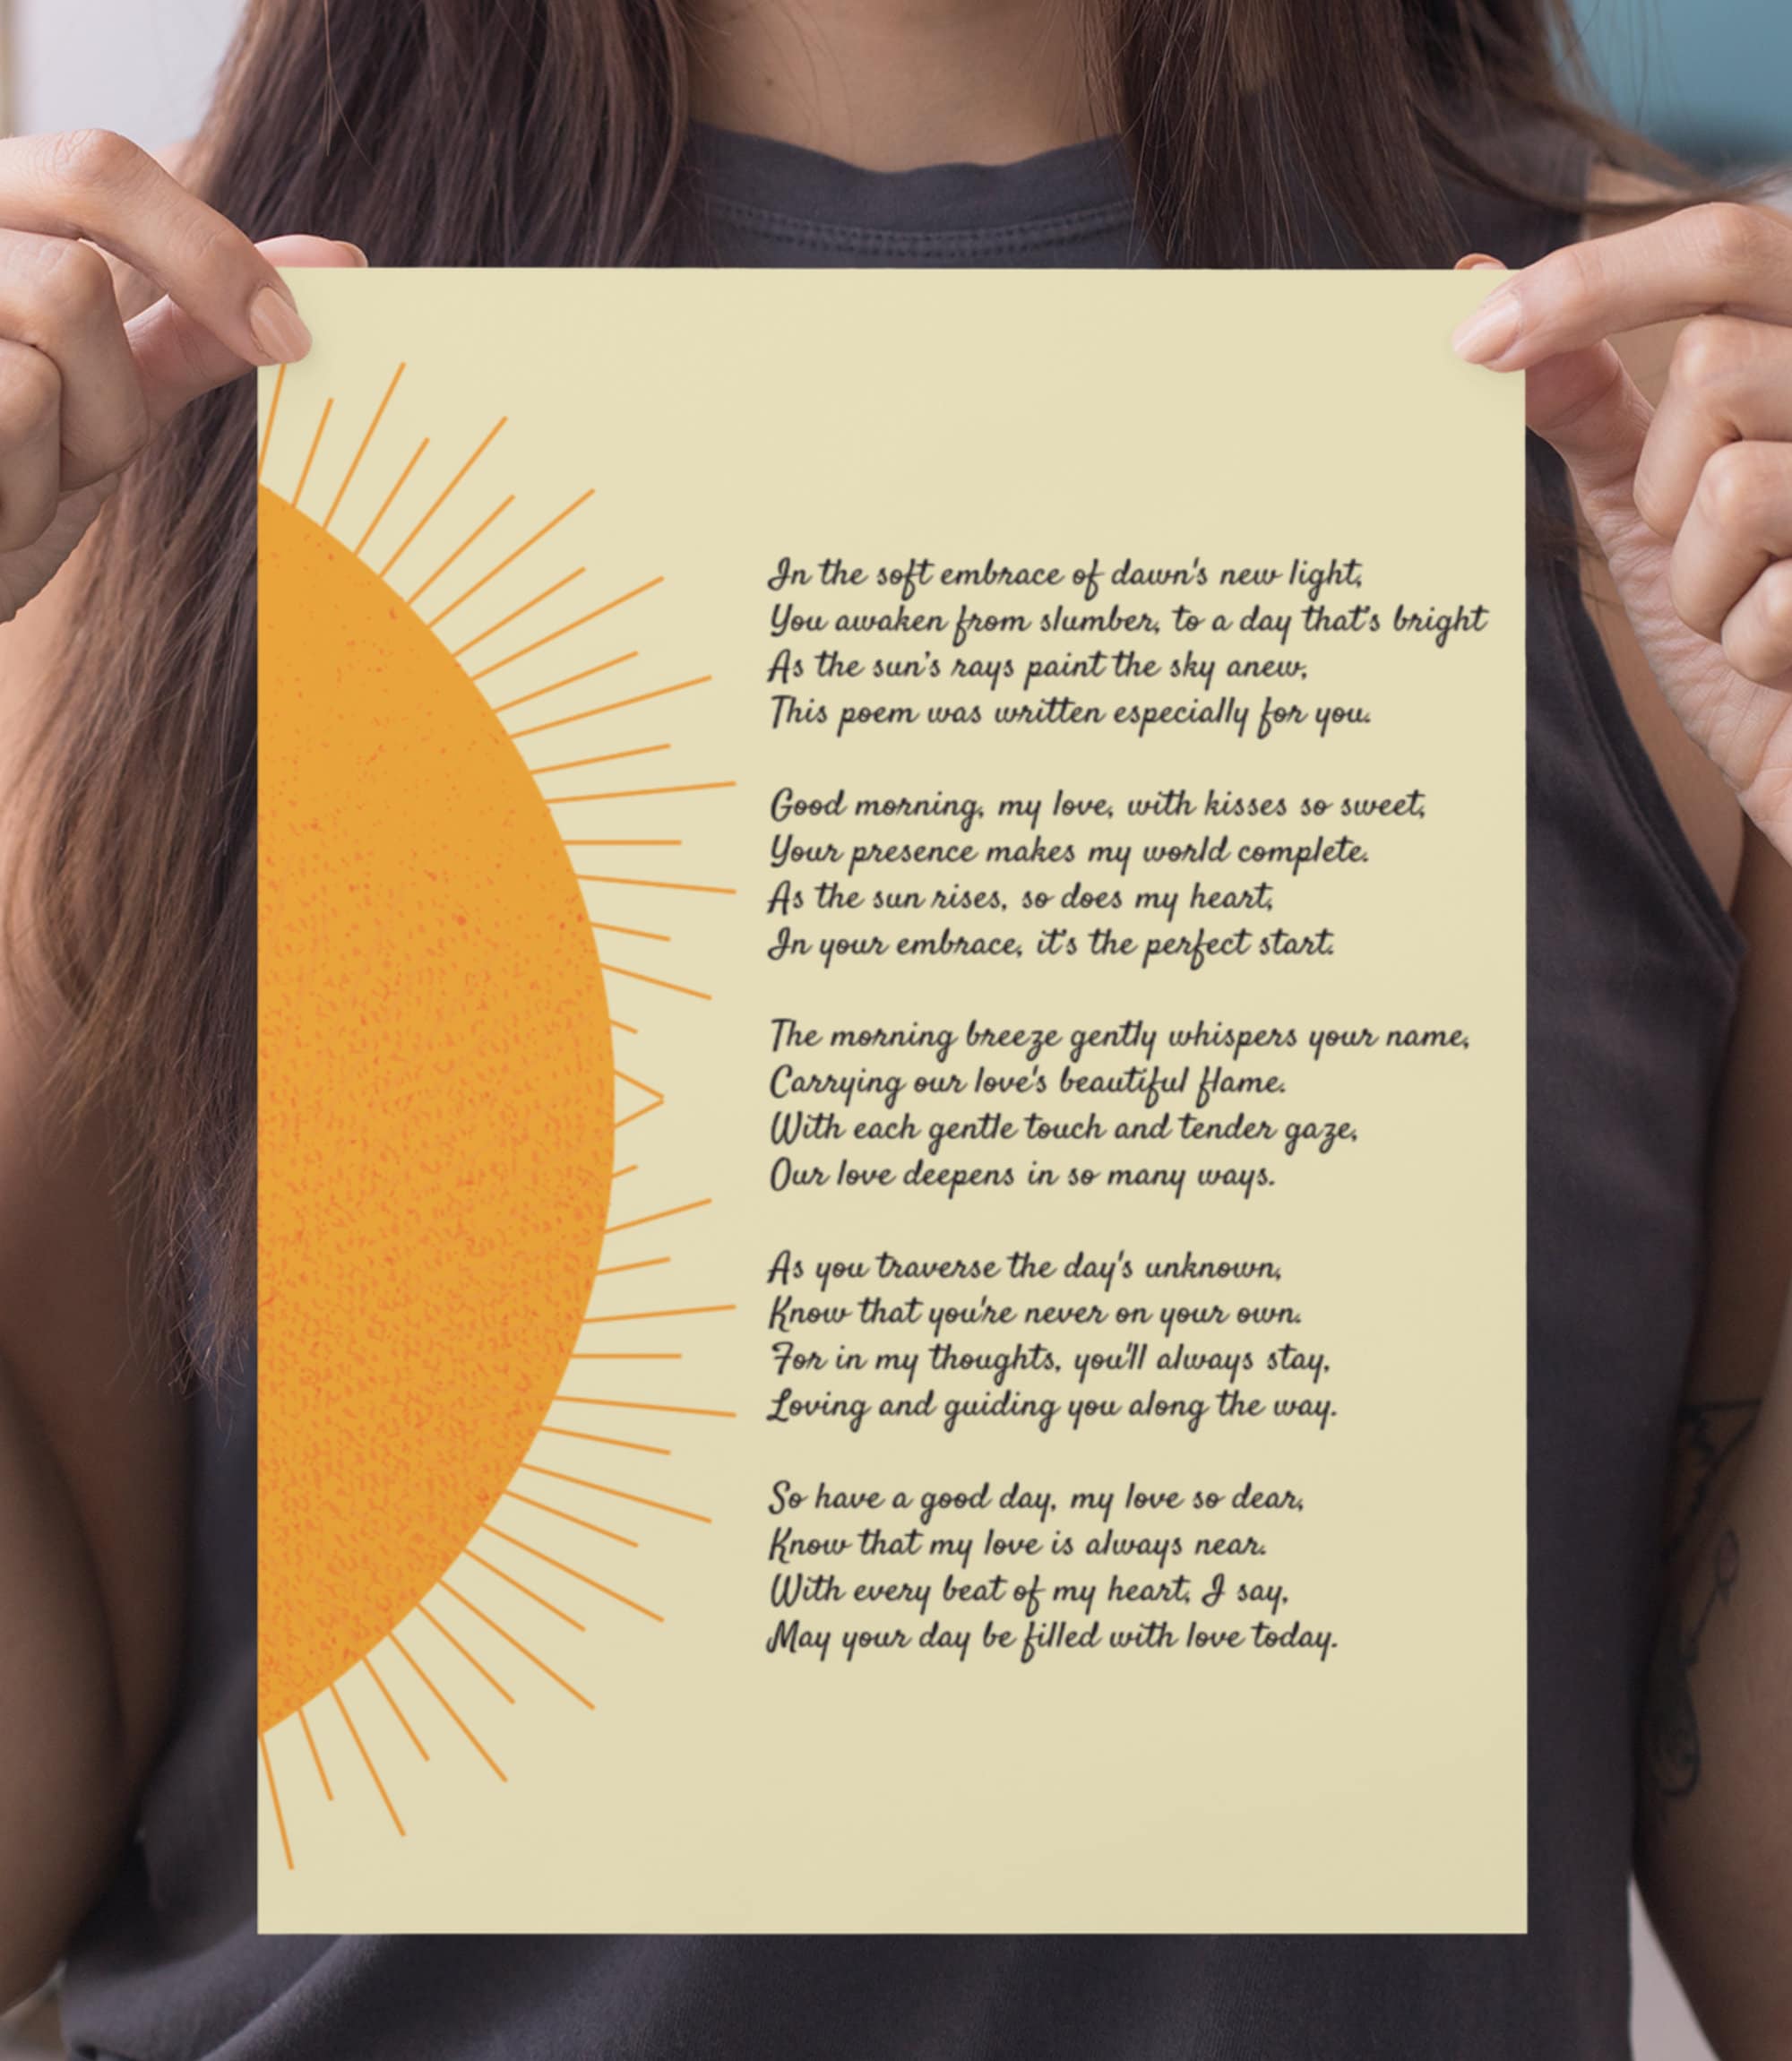 In the soft embrace of dawn's new light,
You awaken from slumber, to a day that's bright
As the sun's rays paint the sky anew,
This poem was written especially for you.
Good morning, my love, with kisses so sweet,
Your presence makes my world complete.
As the sun rises, so does my heart,
In your embrace, it's the perfect start.
The morning breeze gently whispers your name,
Carrying our love's beautiful flame.
With each gentle touch and tender gaze,
Our love deepens in so many ways.
As you traverse the day's unknown,
Know that you're never on your own.
For in my thoughts, you'll always stay,
Loving and guiding you along the way.
So have a good day, my love so dear,
Know that my love is always near.
With every beat of my heart, I say,
May your day be filled with love today.